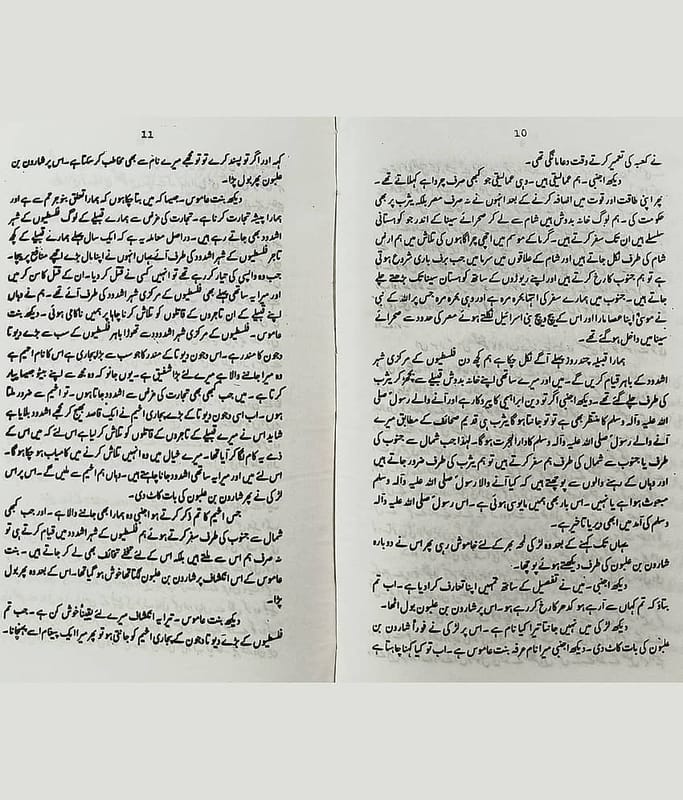 10
نے کعبہ کی تعمیر کرتے وقت دعا مانگی تھی۔
دیکھ اجنبی۔ ہم عمالیقی ہیں۔ وہی عمالیقی جو کبھی صرف چرواہے کہلاتے تھے۔
پھر اپنی طاقت اور قوت میں اضافہ کرنے کے بعد انہوں نے نہ صرف مصر بلکہ یثرب پر بھی
حکومت کی۔ ہم لوگ خانہ بدوش ہیں شام سے لے کر صحرائے سینا کے اندر جو کوہستانی
سلسلے ہیں ان تک سفر کرتے ہیں۔ گرما کے موسم میں اچھی چراگاہوں کی تلاش میں ہم ارض
شام کی طرف نکل جاتے ہیں اور شام کے علاقوں میں سرما میں جب برف باری شروع ہوتی
ہے تو ہم جنوب کا رخ کرتے ہیں اور اپنے ریوڑوں کے ساتھ کوہستان سینا تک بڑھتے چلے
جاتے ہیں۔ جنوب میں ہمارے سفر کی انتہا بحرہ مرہ ہے اور وہی بحرہ مرہ جس پر اللہ کے نبی
نے موسیٰ اپنا عصا مارا اور اس کے بیچ و بیچ بنی اسرائیل نکلتے ہوئے مصر کی حدود سے صحرائے
سینا میں داخل ہو گئے تھے۔
ہمارا قبیلہ چند روز پہلے آگے نکل چکا ہے ہم کچھ دن فلسطیوں کے مرکزی شہر
اشدود کے باہر قیام کریں گے۔ میں اور میرے ساتھی اپنے خانہ بدوش قبیلے سے بچھڑ کر یثرب
کی طرف چلے گئے تھے۔ دیکھ اجنبی اگر تو دین ابراہیمی کا پیروکار ہے اور آنے والے رسول صلی
اللہ علیہ وآلہ وسلم کا منتظر بھی ہے تو تو جانتا ہو گا یثرب ہی قدیم صحائف کے مطابق میرے
آنے والے رسول صلی اللہ علیہ وآلہ وسلم کا دارالہجرت ہو گا۔ لہٰذا جب شمال سے جنوب کی
طرف یا جنوب سے شمال کی طرف ہم سفر کرتے ہیں تو ہم یثرب کی طرف ضرور جاتے ہیں
اور وہاں کے رہنے والوں سے پوچھتے ہیں کہ کیا آنے والا رسول صلی اللہ علیہ وآلہ وسلم
مبعوث ہوا ہے یا نہیں۔ اس بار بھی ہمیں مایوسی ہوئی ہے۔ اس رسول صلی اللہ علیہ وآلہ
وسلم کی آمد میں ابھی دیر یا تاخیر ہے۔
یہاں تک کہنے کے بعد وہ لڑکی لمحہ بھر کے لئے خاموش رہی پھر اس نے دوبارہ
شارون بن علبون کی طرف دیکھتے ہوئے پوچھا۔
دیکھ اجنبی۔ میں نے تفصیل کے ساتھ تمہیں اپنا تعارف کرا دیا ہے۔ اب تم
بتاؤ کہ تم کہاں سے آ رہے ہو کدھر کا رخ کر رہے ہو۔ اس پر شارون بن علبون بول اٹھا۔
دیکھ لڑکی میں نہیں جانتا تیرا کیا نام ہے۔ اس پر لڑکی نے فوراً شارون بن
علبون کی بات کاٹ دی۔ دیکھ اجنبی میرا نام عرفہ بنت عاموس ہے۔ اب تو کیا کہنا چاہتا ہے
11
کہہ اور اگر تو پسند کرے تو تو مجھے میرے نام سے بھی مخاطب کر سکتا ہے۔ اس پر شارون بن
علبون پھر بول پڑا۔
دیکھ بنت عاموس۔ جیسا کہ میں بتا چکا ہوں کہ ہمارا تعلق بنو جرہم سے ہے اور
ہمارا پیشہ تجارت کرنا ہے۔ تجارت کی غرض سے ہمارے قبیلے کے لوگ فلسطیوں کے شہر
اشدود بھی جاتے رہے ہیں۔ دراصل معاملہ یہ ہے کہ ایک سال پہلے ہمارے قبیلے کے کچھ
تاجر فلسطیوں کے شہر اشدود کی طرف آئے یہاں انہوں نے اپنا مال بڑے اچھے منافع پر بیچا۔
جب وہ واپسی کی تیاری کر رہے تھے تو انہیں کسی نے قتل کر دیا۔ ان کے قتل کا سن کر میں
اور میرا یہ ساتھی پہلے بھی فلسطیوں کے مرکزی شہر اشدود کی طرف آئے تھے۔ ہم نے وہاں
اپنے قبیلے کے ان تاجروں کے قاتلوں کو تلاش کرنا چاہا پر ہمیں ناکامی ہوئی۔ دیکھ بنت
عاموس۔ فلسطیوں کے مرکزی شہر اشدود سے تھوڑا باہر فلسطیوں کے سب سے بڑے دیوتا
دجون کا مندر ہے۔ اس دجون دیوتا کے مندر کا جو سب سے بڑا پجاری ہے اس کا نام اشیم ہے
وہ میرا جاننے والا ہے میرے لئے بڑا شفیق ہے۔ یوں جانو کہ وہ مجھ سے اپنے بیٹے جیسا پیار
کرتا ہے۔ میں جب کبھی بھی تجارت کی غرض سے اشدود جاتا ہوں۔ تو اشیم سے ضرور ملتا
ہوں۔ اب اسی دجون دیوتا کے بڑے پجاری اشیم نے ایک قاصد بھیج کر مجھے اشدود بلایا ہے
شاید اس نے میرے قبیلے کے تاجروں کے قاتلوں کو تلاش کر لیا ہے اس لئے کہ میں اس کے
ذمے یہ کام لگا کر آیا تھا۔ میرے خیال میں وہ انہیں تلاش کرنے میں کامیاب ہو چکا ہو گا۔
اس لئے میں اور میرا یہ ساتھی اشدود جانا چاہتے ہیں۔ وہاں ہم اشیم سے ملیں گے۔ اس پر اس
لڑکی نے پھر شارون بن علبون کی بات کاٹ دی۔
جس اشیم کا تم ذکر کرتے ہو اجنبی وہ ہمارا بھی جاننے والا ہے۔ اور جب کبھی
شمال سے جنوب کی طرف سفر کرتے ہوئے ہم فلسطیوں کے شہر اشدود میں قیام کرتے ہی تو
نہ صرف ہم اس سے ملتے ہیں بلکہ اس کے لئے تحفے تحائف بھی لے کر جاتے ہیں۔ بنت
عاموس کے اس انکشاف پر شارون بن علبون لگتا تھا خوش ہو گیا تھا۔ اس کے بعد وہ پھر بول
پڑا۔
دیکھ بنت عاموس۔ تیرا یہ انکشاف میرے لئے یقیناً خوش کن ہے۔ جب تم
فلسطیوں کے بڑے دیوتا دجون کے پجاری اشیم کو جانتی ہو تو پھر میرا ایک پیغام اسے پہنچانا۔